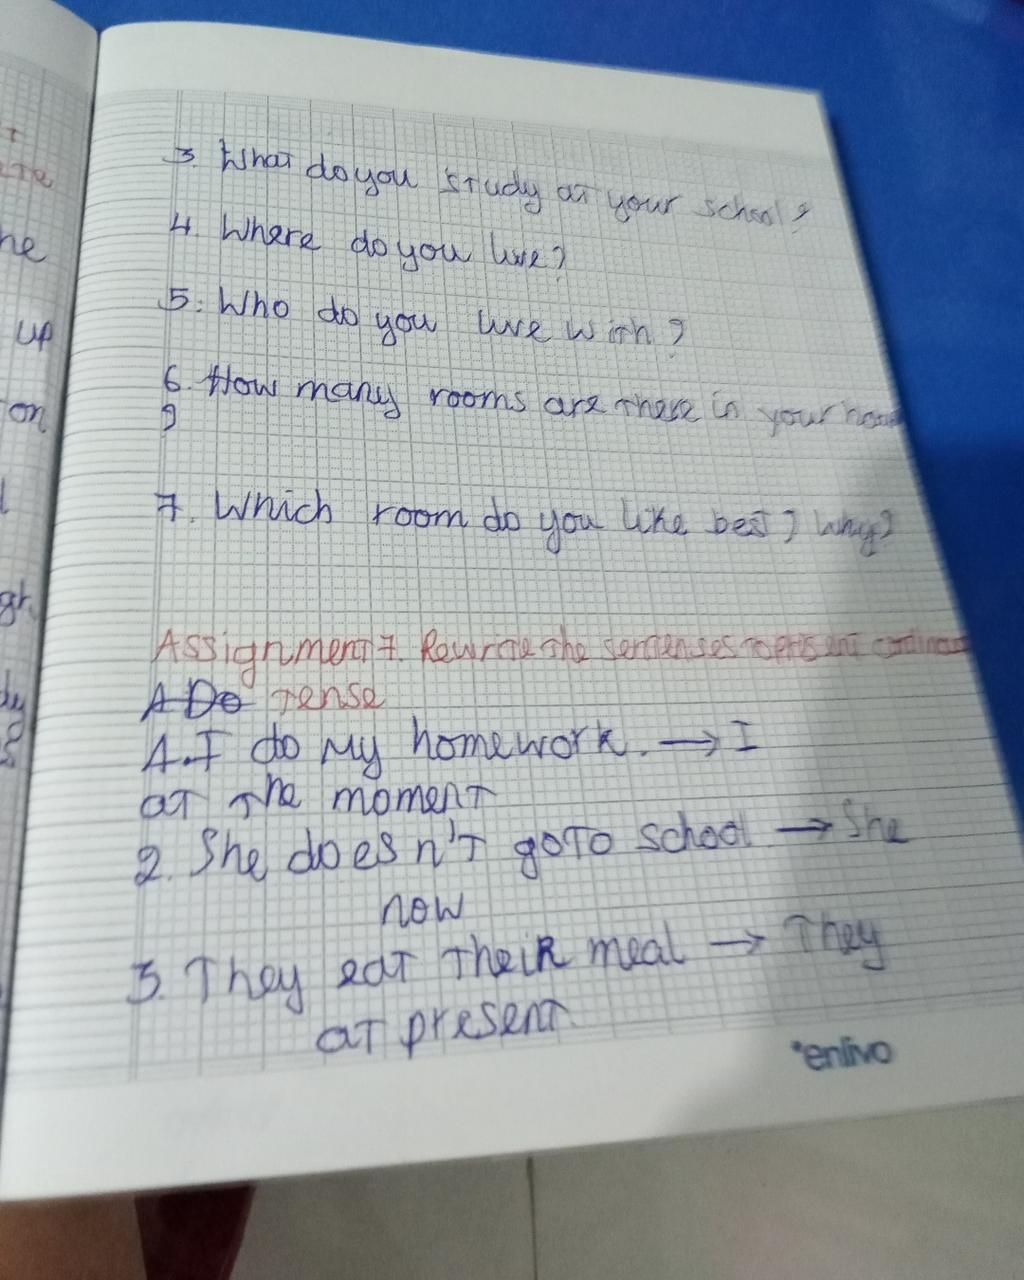 3. What do you study at your school?
4. Where do you live?
5. Who do you live with?
6. How many rooms are there in your
?
7. Which room do you like best? Why?
Assignment 7. Rewrite the sentenses to present continous
A Do tense
A. I do my homework. → I
at the moment
2. She doesn't go to school → She
now
3. They eat their meal → They
at present.
enlivo
he
up
on